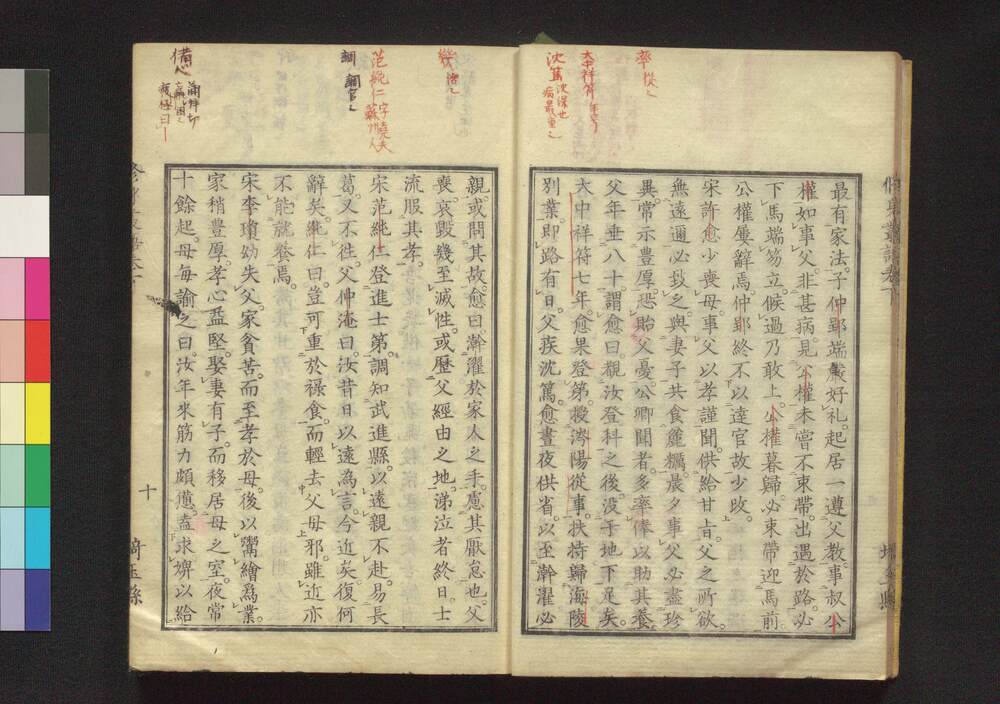 率從之
大中祥符年号
沈篤沈深也
病最重之
最有家法。子仲郢端嚴好礼。起居一遵父教。事叔公
權如事父。非甚病。見公權未嘗不束帶。出遇於路。必
下馬端笏立。候過乃敢上。公權暮歸。必束帶迎馬前
公權屢辭焉。仲郢終不以達官故少改。
宋許愈少喪母。事父以孝謹聞。供給甘旨。父之所欲
無遠邇必致之。與妻子共食麁糲。晨夕事父。必盡珍
異。常示豊厚。恐貽父憂。公卿聞者。多率俸以助其養
父年垂八十。謂愈曰。親汝登科之後。没于地下足矣。
大中祥符七年。愈果登第。授涔陽從事。扶持歸海陵
別業。即路有日。父疾沈篤。愈晝夜供省。以至澣濯必
幾
范純仁字堯夫
蘇州人
調
憊蒲拜切
疲極曰
親。或問其故。愈曰。澣濯於家人之手。慮其厭怠也。父
喪。哀毀幾至滅性。或歷父經由之地。涕泣者終日。士
流服其孝。
宋范純仁登進士第。調知武進縣。以遠親不赴。易長
葛。又不徃。父仲淹曰。汝昔日以遠為言。今近矣。復何
辭矣。純仁曰。豈可重於祿食。而輕去父母邪。雖近亦
不能就養焉。
宋李瓊幼失父。家貧苦。而至孝於母。後以鬻繒爲業。
家稍豊厚。孝心益堅。娶妻有子。而移居母之室。夜常
十餘起。母毎諭之曰。汝年來筋力頗憊。盍求婢以給
十